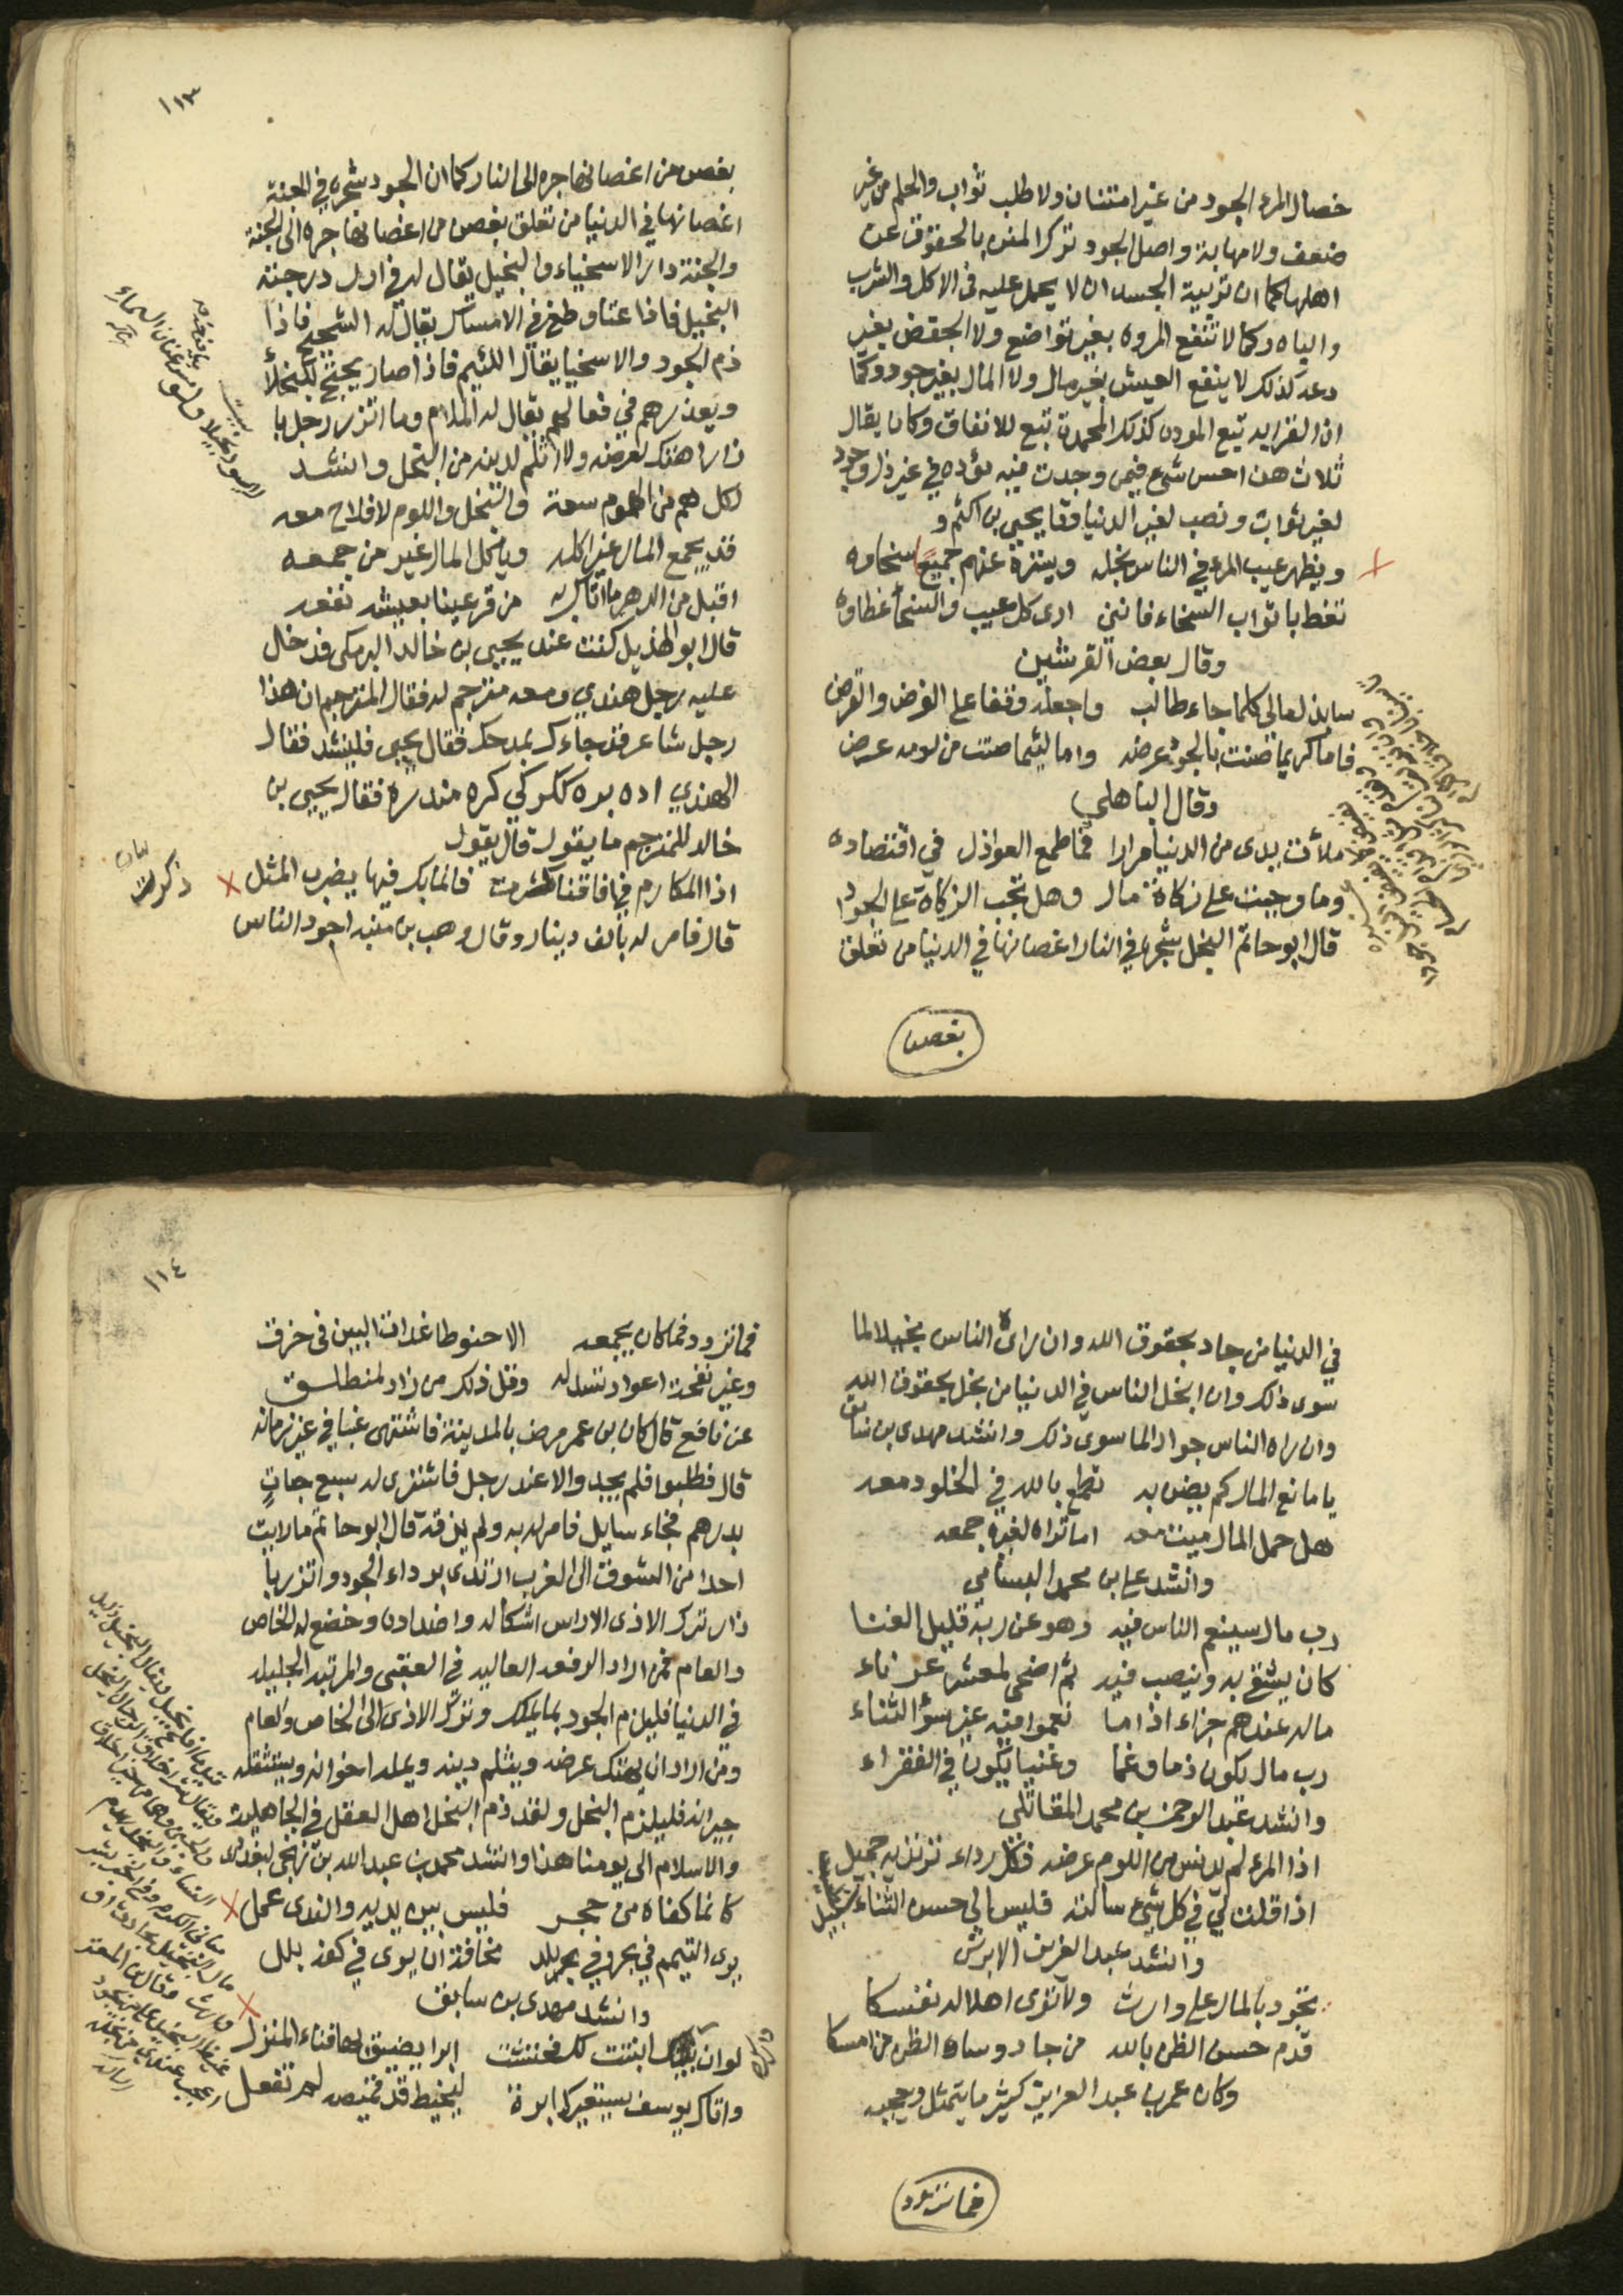 خصال المرء الجود من غير امتنان ولا طلب ثواب والحلم من غير
ضعف ولا مهابة واصل الجود ترك الضن بالحقوق عن
اهلها كما ان تربية الجسد ان لا يحمل عليه في الاكل والشرب
والباه وكما لا تنفع المروه بغير تواضع ولا الحفض بغير
كذلك لا ينفع العيش بغير مال ولا المال بغير جود وكما
ان القرابه تبع المودة كذلك المحمدة تبع للانفاق وكان يقال
ثلاث هن احسن شيء فيمن وجدت فيه في غير ذل وجود
لغير ثواب ونصب لغير الدنيا وقا يحيى بن اكثم
ويظهر عيب المرء في الناس بخله ويستره عنهم جميعا سخاوه
تغط باثواب السخاء فانني ارى كل عيب والسخا غطاوه
وقال بعض القرشيين
سابذل مالي كلما جاء طالب واجعله وقفا على القرض والفرض
فاما كريما صنت بالجود عرضه واما لئيما صنت من لومه عرضي
وقال الباهلي
ملأت يدى من الدنيا مرارا فما طمع العواذل في اقتصادى
وما وجبت علي زكاة مال وهل تجب الزكاة على الجواد
قال ابو حاتم البخل شجره في النار اغصانها في الدنيا من تعلق
بغصن
١١٣
بغصن من اغصانها جره الى النار كما ان الجود شجره في الجنة
اغصانها في الدنيا من تعلق بغصن من اغصانها جره الى الجنة
والجنة دار الاسخياء والبخيل يقال له في اول درجته
البخيل فاذا عتا وطغى في الامساك يقال له الشحيح فاذا
ذم الجود والاسخيا يقال اللئيم فاذا صار يحتج للبخلا
ويعذرهم في فعالهم يقال له الملام وما اتزر رجل با
زار اهتك لعرضه ولا اثلم لدينه من البخل وانشد
لكل هم من الهموم سعة والبخل واللوم لا فلاح معه
قد يجمع المال غير اكله وياكل المال غير من جمعه
اقبل من الدهر ما اتاك به من قر عينا بعيشه نفعه
قال ابو الهذيل كنت عند يحيى بن خالد البرمكى فدخل
عليه رجل هندي ومعه مترجم له فقال المترجم ان هذا
رجل شاعر قد جاءك بمدحك فقال يحيى فلينشد فقال
الهندي اره بره ككر كي كره مندره فقال يحيى بن
خالد للمترجم ما يقول قال يقول
اذا المكارم في افاقنا ذكرت فانما بك فيها يضرب المثل
ذكرت
قال فامر له بالف دينار وقال وهب بن منبه اجود الناس
في الدنيا من جاد بحقوق الله وان راه الناس بخيلا لما
سوى ذلك وان ابخل الناس في الدنيا من بخل بحقوق الله
وان راه الناس جوادا لما سوى ذلك وانشد مهدى بن سابق
يا مانع المال كم يضن به تطمع بالله في الخلود معه
هل حمل المال ميت معه اما تراه لغيره جمعه
وانشد علي بن محمد البسامي
رب مال سينعم الناس فيه وهو عن ربه قليل الغنا
كان يشقى به وينصب فيه ثم اضحى لمعشر غرباء
ماله عندهم جزاء اذا ما نعموا فيه غير سوء الثناء
رب مال يكون ذما وغما وغنيا يكون في الفقراء
وانشد عبد الرحمن بن محمد المقاتلي
اذا المرء لم يدنس من اللوم عرضه فكل رداء ترتديه جميل
اذا قلت لي في كل شيء سالته فليس الى حسن الثناء سبيل
وانشد عبد العزيز الابرش
تجود بالمال على وارث ولا ترى اهلا له نفسكا
قدم حسن الظن بالله من جاد وساء الظن من امسكا
وكان عمر بن عبد العزيز كثير ما يتمثل ويعجبه
فما تزود
١١٤
فما تزود مما كان يجمعه الا حنوطا غداة البين في خرق
وغير نفحة اعواد تشد له وقل ذلك من زاد لمنطلق
عن نافع قال كان بن عمر مرض بالمدينة فاشتهى عنبا في غير زمانه
قال فطلبوا فلم يجدوا الا عند رجل فاشترى له سبع حبات
بدرهم فجاء سايل فامر له به ولم يذقه قال ابو حاتم ما رايت
احدا من الشرق الى الغرب ارتدى برداء الجود واتزر با
زار ترك الاذى الا راس اشكاله واضداده وخضع له الخاص
والعام فمن اراد الرفعه العاليه في العقبى والمرتبه الجليله
في الدنيا فليلزم الجود بما يملك وترك الاذى الى الخاص والعام
ومن اراد ان يهتك عرضه ويثلم دينه ويمله اخوانه ويستثقله
جيرانه فليلزم البخل ولقد ذم البخل اهل العقل في الجاهلية
والاسلام الى يومنا هذا وانشد محمد بن عبد الله بن زنجى البغدادى
كانما كفاه من حجر فليس بين يديه والندى عمل
يرى التيمم في بحر وفي بر مخافة ان يرى في كفه بلل
وانشد مهدى بن سابق
لو ان بيتك انبتت لك فحنثت ابرا يضيق بها فناء المنزل
واتاك يوسف يستعيرك ابرة ليخيط قد قميصه لم تفعل